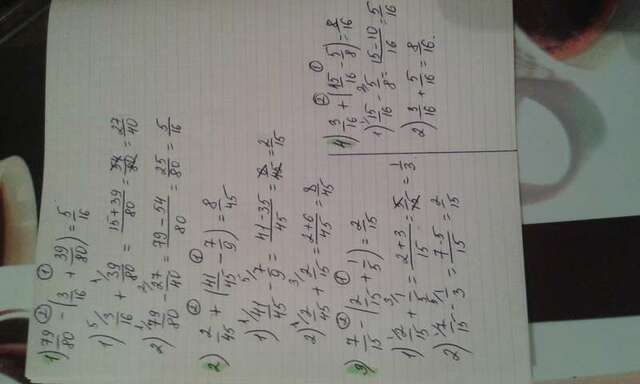 1) 79/80 - (3/16 + 39/80) = 5/16
1) 3/16 + 39/80 = 15+39/80 = 54/80 = 27/40
2) 79/80 - 27/40 = 79-54/80 = 25/80 = 5/16
2) 2/45 + (41/45 - 7/9) = 8/45
1) 41/45 - 7/9 = 41-35/45 = 6/45 = 2/15
2) 2/45 + 2/15 = 2+6/45 = 8/45
3) 7/15 - (2/15 + 1/5) = 2/15
1) 2/15 + 1/5 = 2+3/15 = 5/15 = 1/3
2) 7/15 - 1/3 = 7-5/15 = 2/15
4) 3/16 + (15/16 - 5/8) = 8/16
1) 15/16 - 5/8 = 15-10/16 = 5/16
2) 3/16 + 5/16 = 8/16.